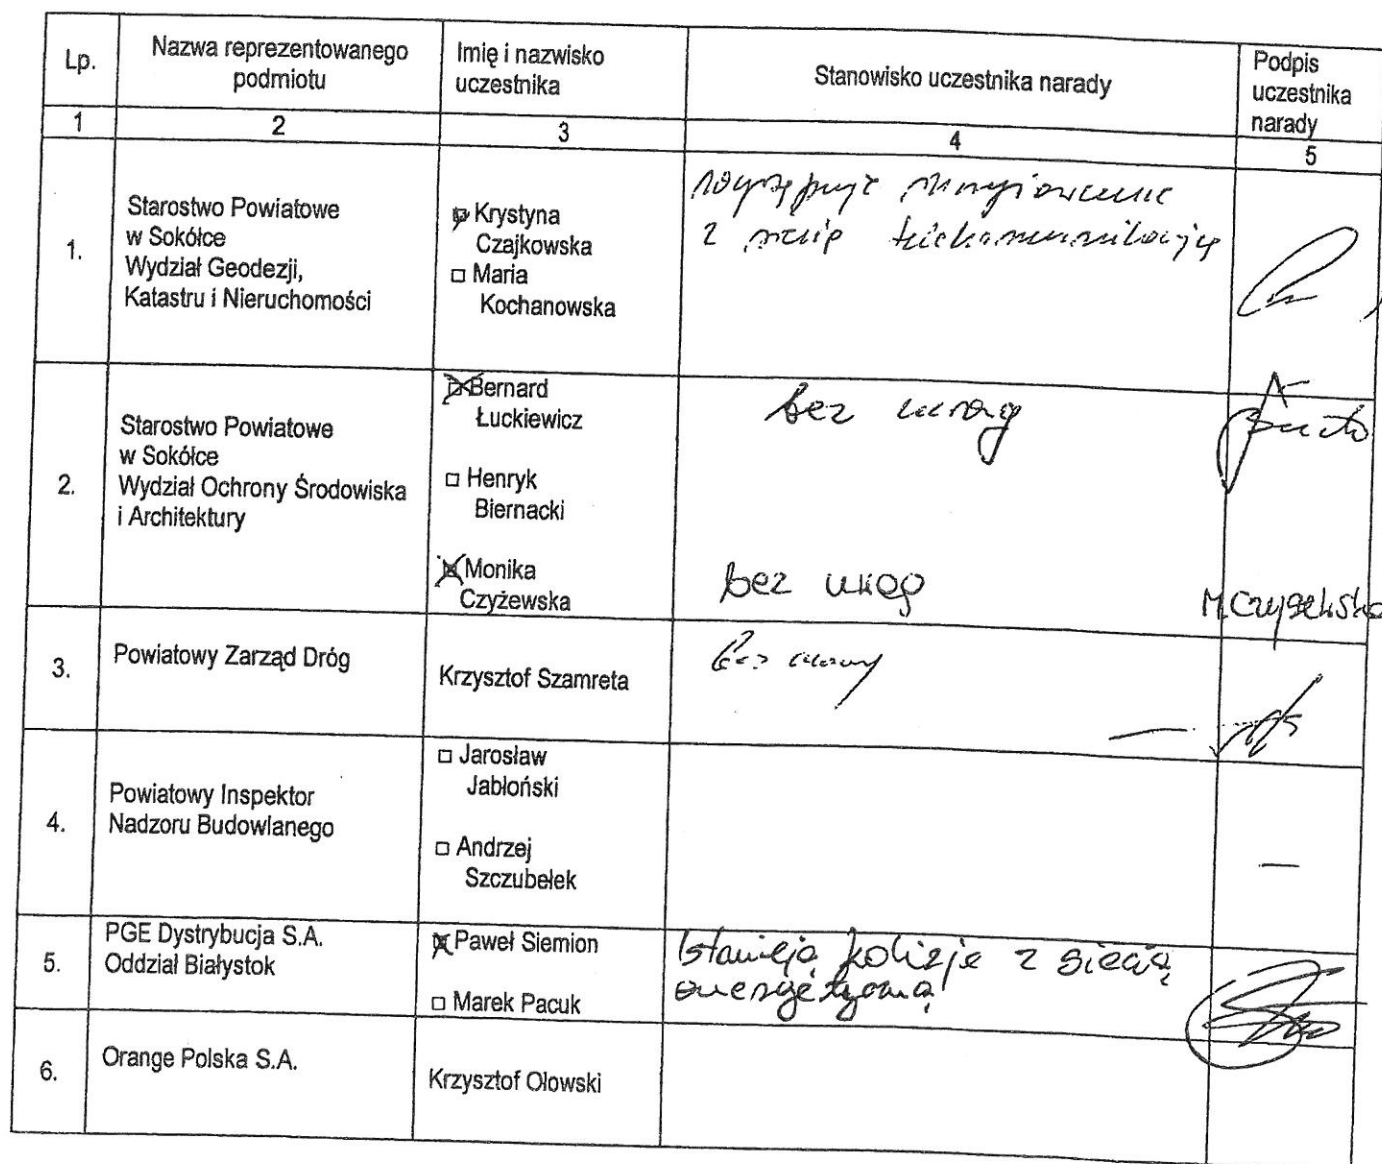 Lp.
Nazwa reprezentowanego
podmiotu
Imię i nazwisko
uczestnika
Stanowisko uczestnika narady
Podpis
uczestnika
narady
1
2
3
4
5
1.
Starostwo Powiatowe
w Sokółce
Wydział Geodezji,
Katastru i Nieruchomości
Krystyna
Czajkowska
□ Maria
Kochanowska
z siecią telekomunikacyjną
2.
Starostwo Powiatowe
w Sokółce
Wydział Ochrony Środowiska
i Architektury
Bernard
Łuckiewicz
□ Henryk
Biernacki
Monika
Czyżewska
bez uwag
bez uwag
M. Czyżewska
3.
Powiatowy Zarząd Dróg
Krzysztof Szamreta
bez uwag
4.
Powiatowy Inspektor
Nadzoru Budowlanego
□ Jarosław
Jabłoński
□ Andrzej
Szczubełek
—
5.
PGE Dystrybucja S.A.
Oddział Białystok
Paweł Siemion
□ Marek Pacuk
Istnieją kolizje z siecią
energetyczną
6.
Orange Polska S.A.
Krzysztof Olowski